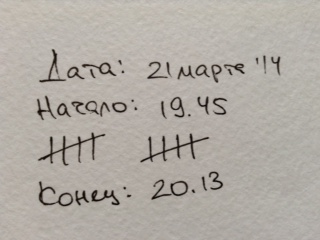 Дата: 21 марта '14
Начало: 19.45
卌 卌
Конец: 20.13